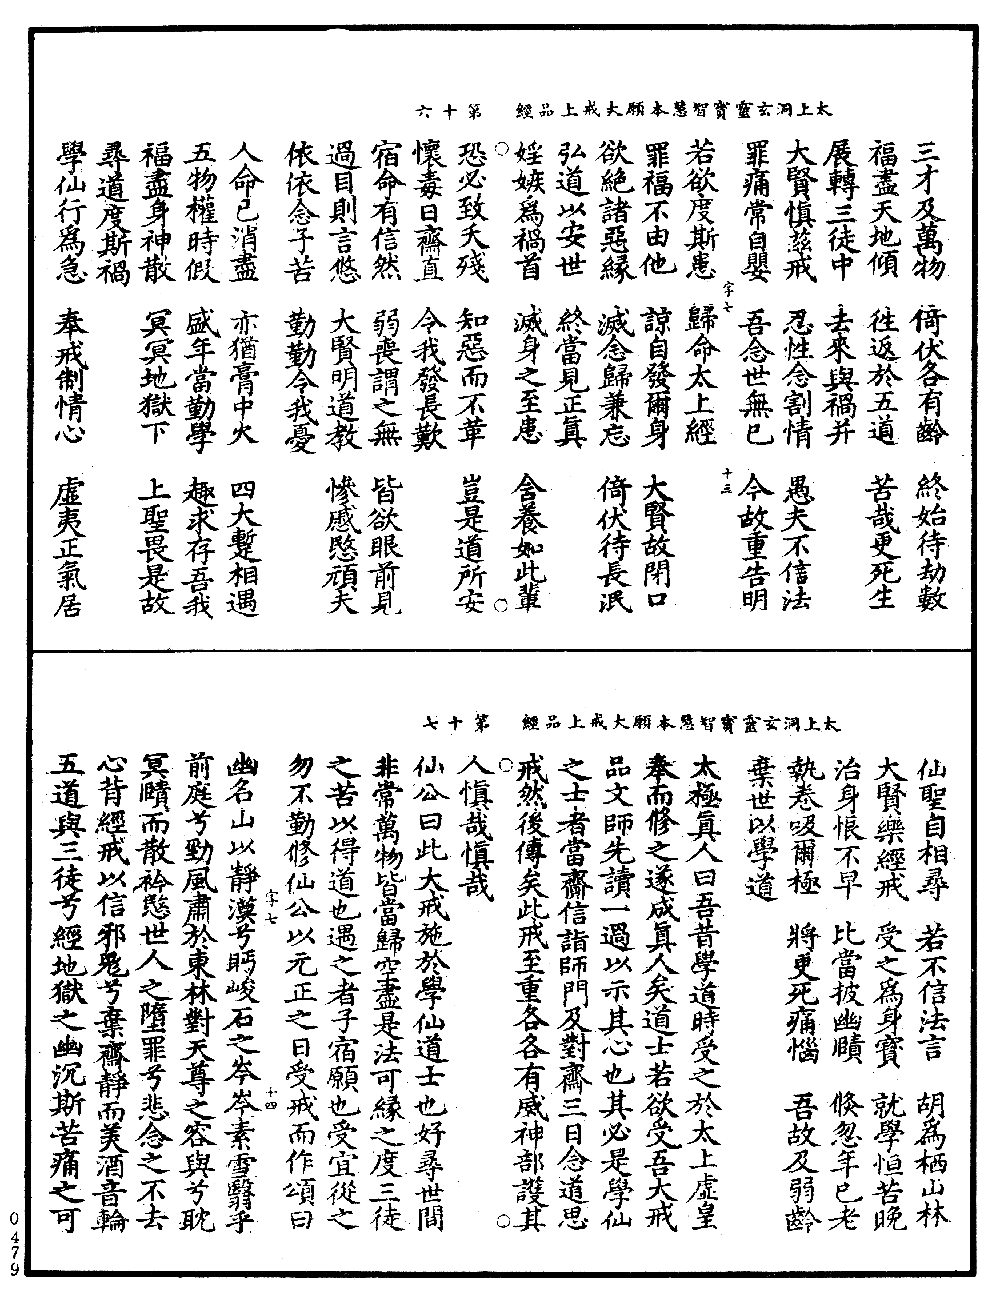 太上洞玄靈寶智慧本願大戒上品經　第十六
三才及萬物　倚伏各有齡　終始待劫數
福盡天地傾　往返於五道　苦哉更死生
展轉三徒中　去來與禍并
大賢慎茲戒　忍性念割情　愚夫不信法
罪痛常自嬰　吾念世無已　今故重告明
字七　十三
若欲度斯患　歸命太上經
罪福不由他　諒自發爾身　大賢故閉口
欲絕諸惡緣　滅念歸兼忘　倚伏待長泯
弘道以安世　終當見正真
婬嫉為禍首　滅身之至患　舍養如此輩
恐必致夭殘　知惡而不革　豈是道所安
懷毒日齋直　令我發長歎
宿命有信然　弱喪謂之無　皆欲眼前見
過目則言悠　大賢明道教　慘慼愍頑夫
依依念子苦　勤勤令我憂
人命已消盡　亦猶膏中火　四大蹔相遇
五物權時假　盛年當勤學　趣求存吾我
福盡身神散　冥冥地獄下　上聖畏是故
尋道度斯禍
學仙行為急　奉戒制情心　虛夷正氣居
太上洞玄靈寶智慧本願大戒上品經　第十七
仙聖自相尋　若不信法言　胡為栖山林
大賢樂經戒　受之為身寶　就學恒苦晚
治身恨不早　比當披幽賾　倏忽年已老
執卷吸爾極　將更死痛惱　吾故及弱齡
棄世以學道
太極真人曰吾昔學道時受之於太上虛皇
奉而修之遂成真人矣道士若欲受吾大戒
品文師先讀一過以示其心也其必是學仙
之士者當齋信詣師門及對齋三日念道思
戒然後傳矣此戒至重各各有威神部護其
人慎哉慎哉
仙公曰此大戒施於學仙道士也好尋世間
非常萬物皆當歸空盡是法可緣之度三徒
之苦以得道也遇之者子宿願也受宜從之
勿不勤修仙公以元正之日受戒而作頌曰
字七　十四
幽名山以靜漠兮眄峻石之岑岑素雪翳乎
前庭兮勁風肅於東林對天尊之容與兮耽
冥賾而散衿愍世人之墮罪兮悲念之不去
心背經戒以信邪鬼兮棄齋靜而美酒音輪
五道與三徒兮經地獄之幽沉斯苦痛之可
0479